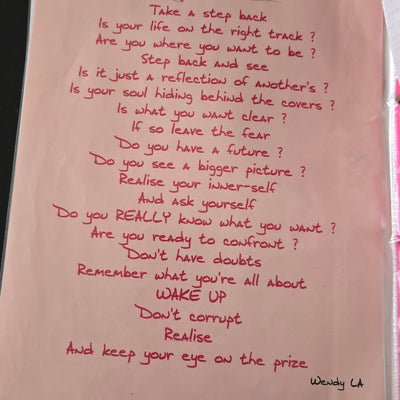 Take a step back
Is your life on the right track ?
Are you where you want to be ?
Step back and see
Is it just a reflection of another's ?
Is your soul hiding behind the covers ?
Is what you want clear ?
If so leave the fear
Do you have a future ?
Do you see a bigger picture ?
Realise your inner-self
And ask yourself
Do you REALLY know what you want ?
Are you ready to confront ?
Don't have doubts
Remember what you're all about
WAKE UP
Don't corrupt
Realise
And keep your eye on the prize
Wendy LA